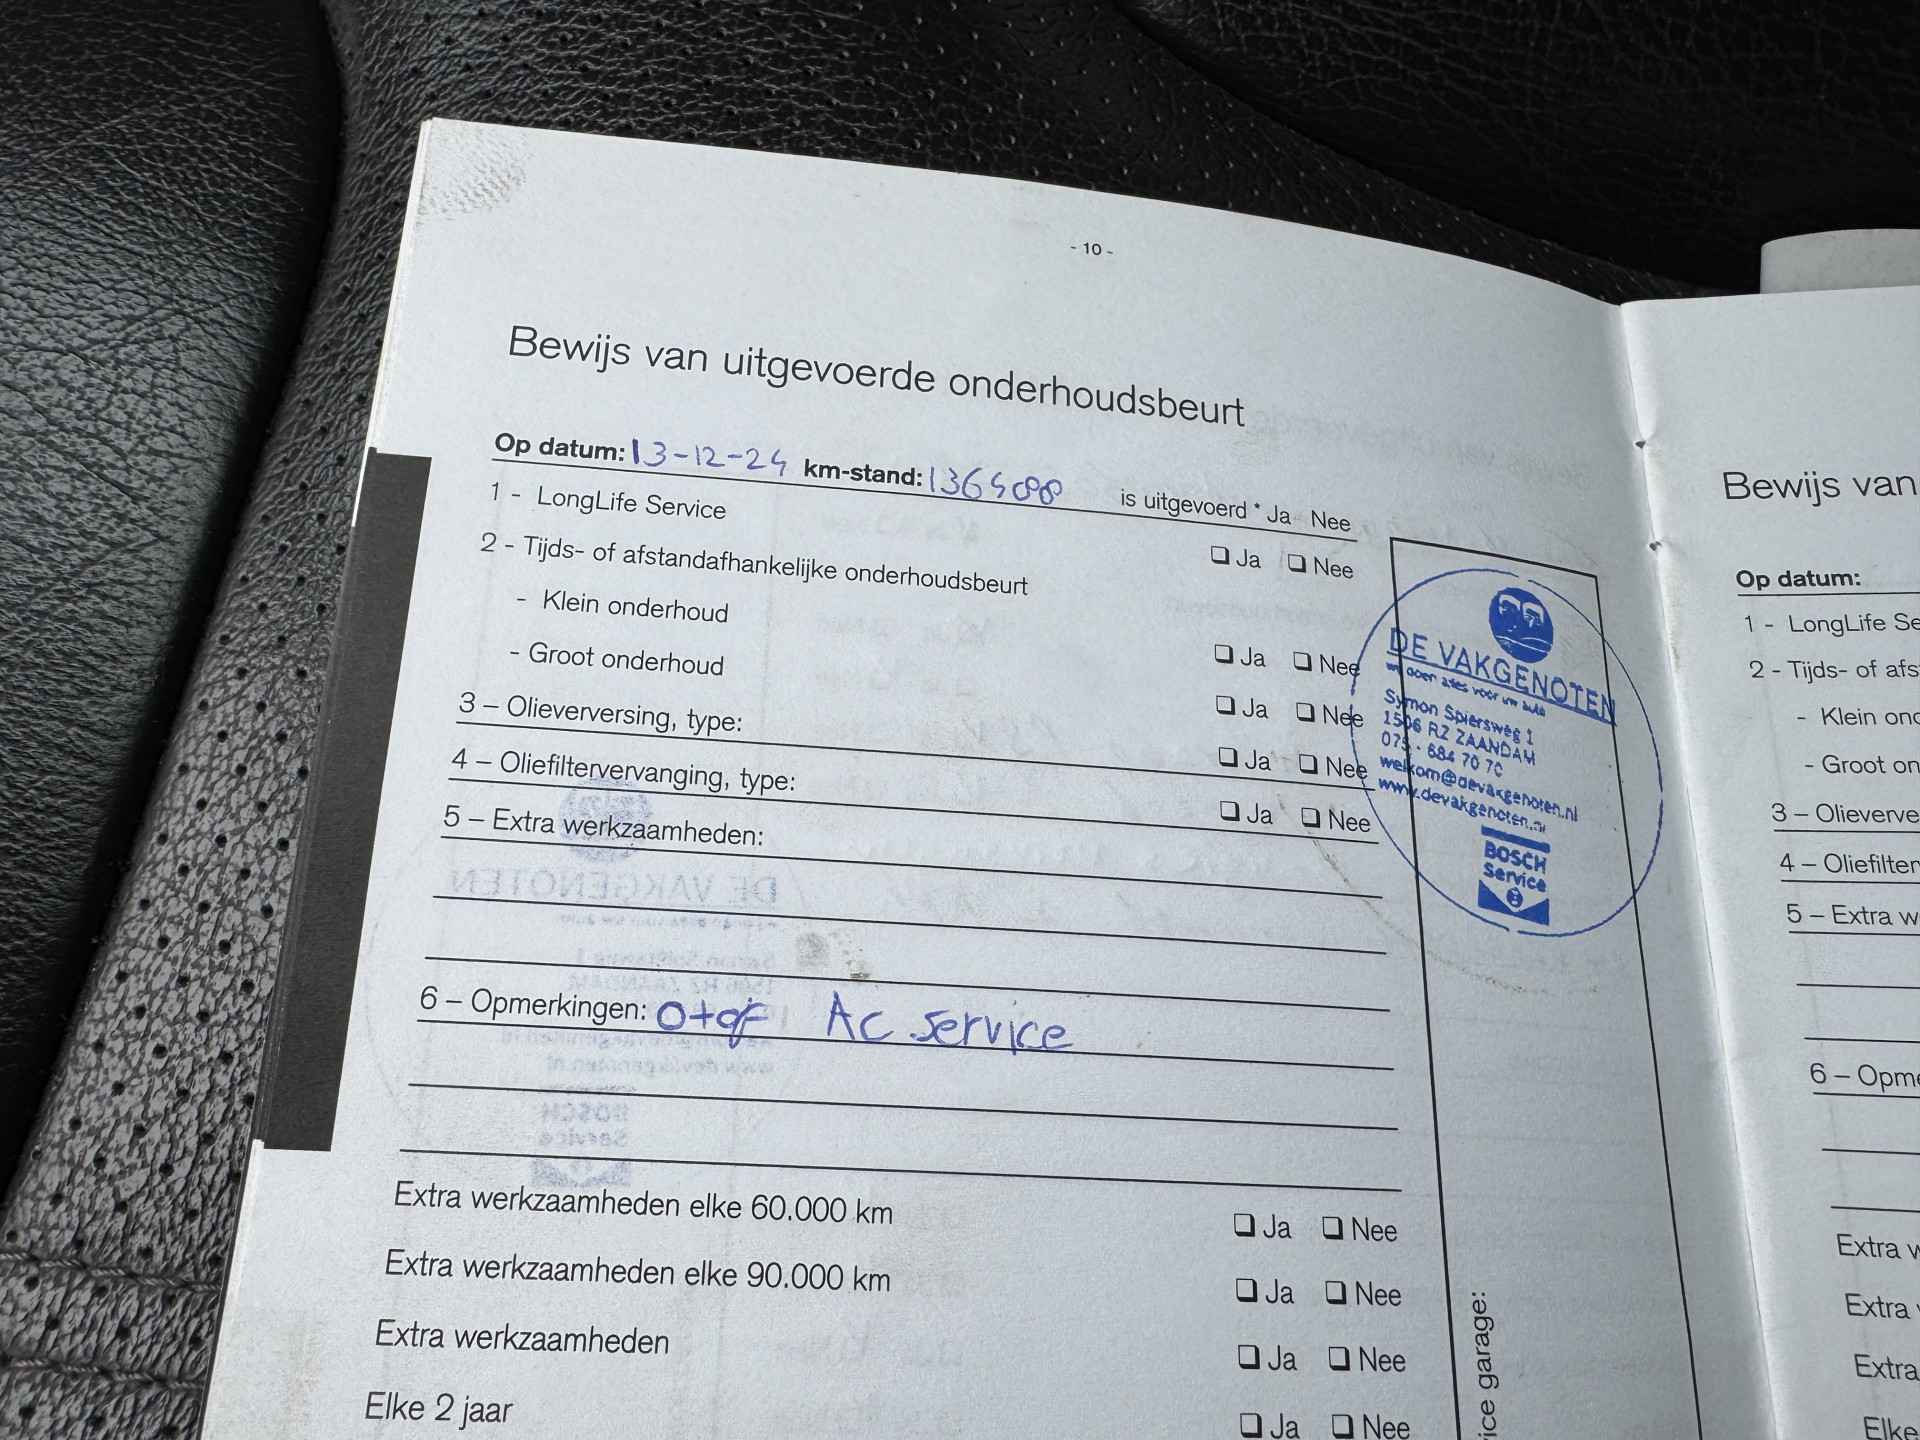 - 10 -
Bewijs van uitgevoerde onderhoudsbeurt
Op datum: 13-12-24 km-stand: 136508 is uitgevoerd * Ja Nee
1 - LongLife Service ❑ Ja ❑ Nee
2 - Tijds- of afstandafhankelijke onderhoudsbeurt
- Klein onderhoud ❑ Ja ❑ Nee
- Groot onderhoud ❑ Ja ❑ Nee
3 – Olieverversing, type: ❑ Ja ❑ Nee
4 – Oliefiltervervanging, type: ❑ Ja ❑ Nee
5 – Extra werkzaamheden:
6 – Opmerkingen: O+of AC service
Extra werkzaamheden elke 60.000 km ❑ Ja ❑ Nee
Extra werkzaamheden elke 90.000 km ❑ Ja ❑ Nee
Extra werkzaamheden ❑ Ja ❑ Nee
Elke 2 jaar ❑ Ja ❑ Nee
DE VAKGENOTEN
voor uw auto
Symon Spiersweg 1
1506 RZ ZAANDAM
075 - 684 70 70
welkom@devakgenoten.nl
www.devakgenoten.nl
BOSCH
Service
ice garage:
Bewijs van
Op datum:
1 - LongLife Se
2 - Tijds- of afs
- Klein ond
- Groot on
3 – Olieverve
4 – Oliefilter
5 – Extra w
6 – Opme
Extra w
Extra
Extra
Elke